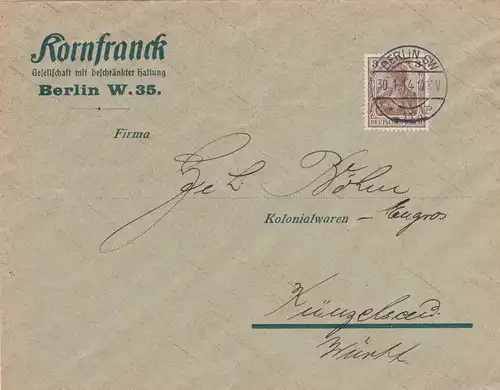 Kornfranck
Gesellschaft mit beschränkter Haftung
Berlin W.35.
BERLIN SW
3 3
30.1.14.
DEUTSCHES REICH
Firma
Böhm
Kolonialwaren – Engros
Künzelsau
Württ